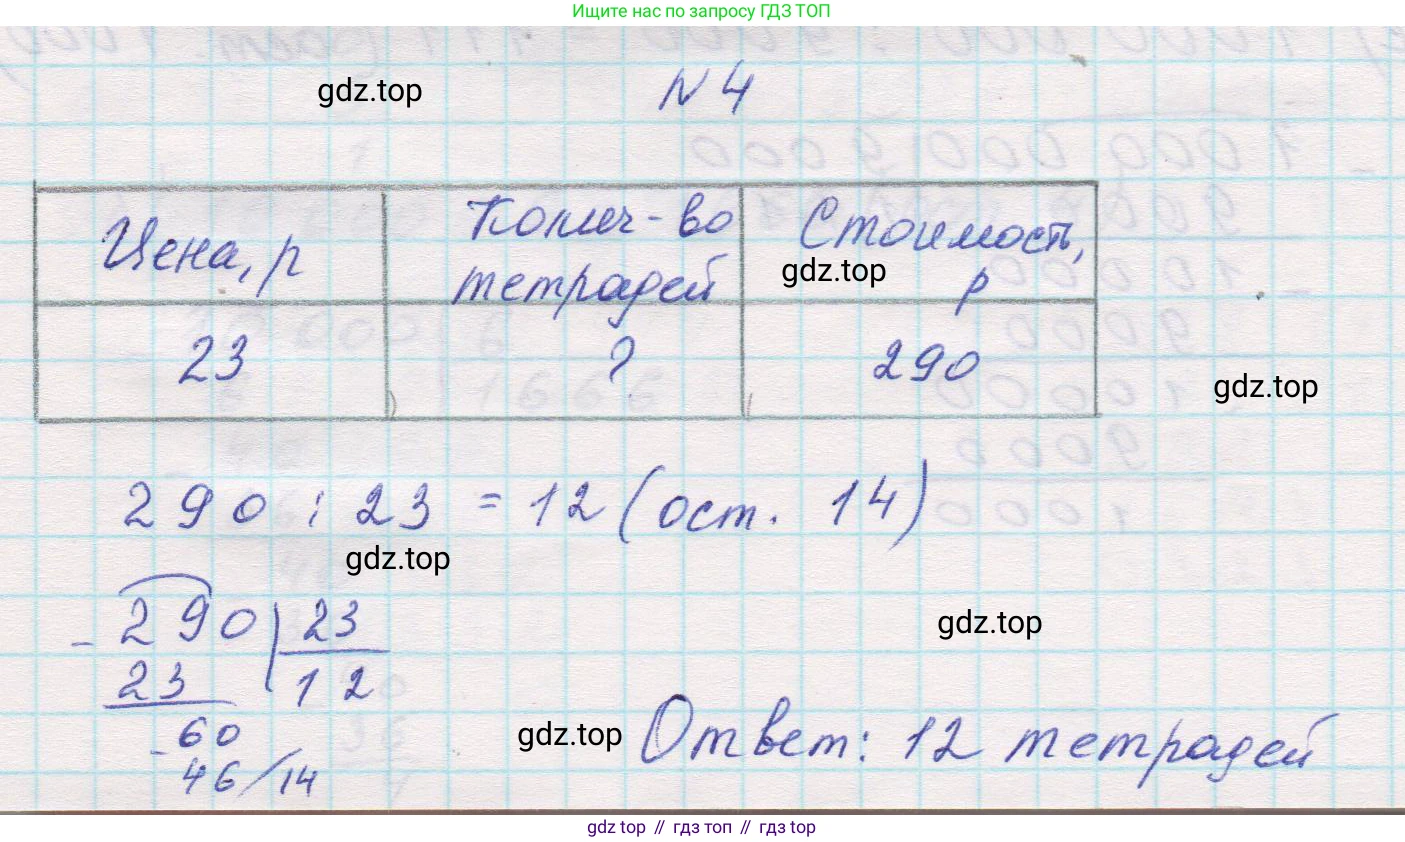 Ищите нас по запросу ГДЗ ТОП
gdz.top
N 4
Цена, р
Колич-во тетрадей
Стоимость, р
gdz.top
23
?
290
gdz.top
290 : 23 = 12 (ост. 14)
gdz.top
- 290 | 23
23 12
- 60
46 / 14
gdz.top
gdz.top
Ответ: 12 тетрадей
gdz top // гдз топ // гдз top